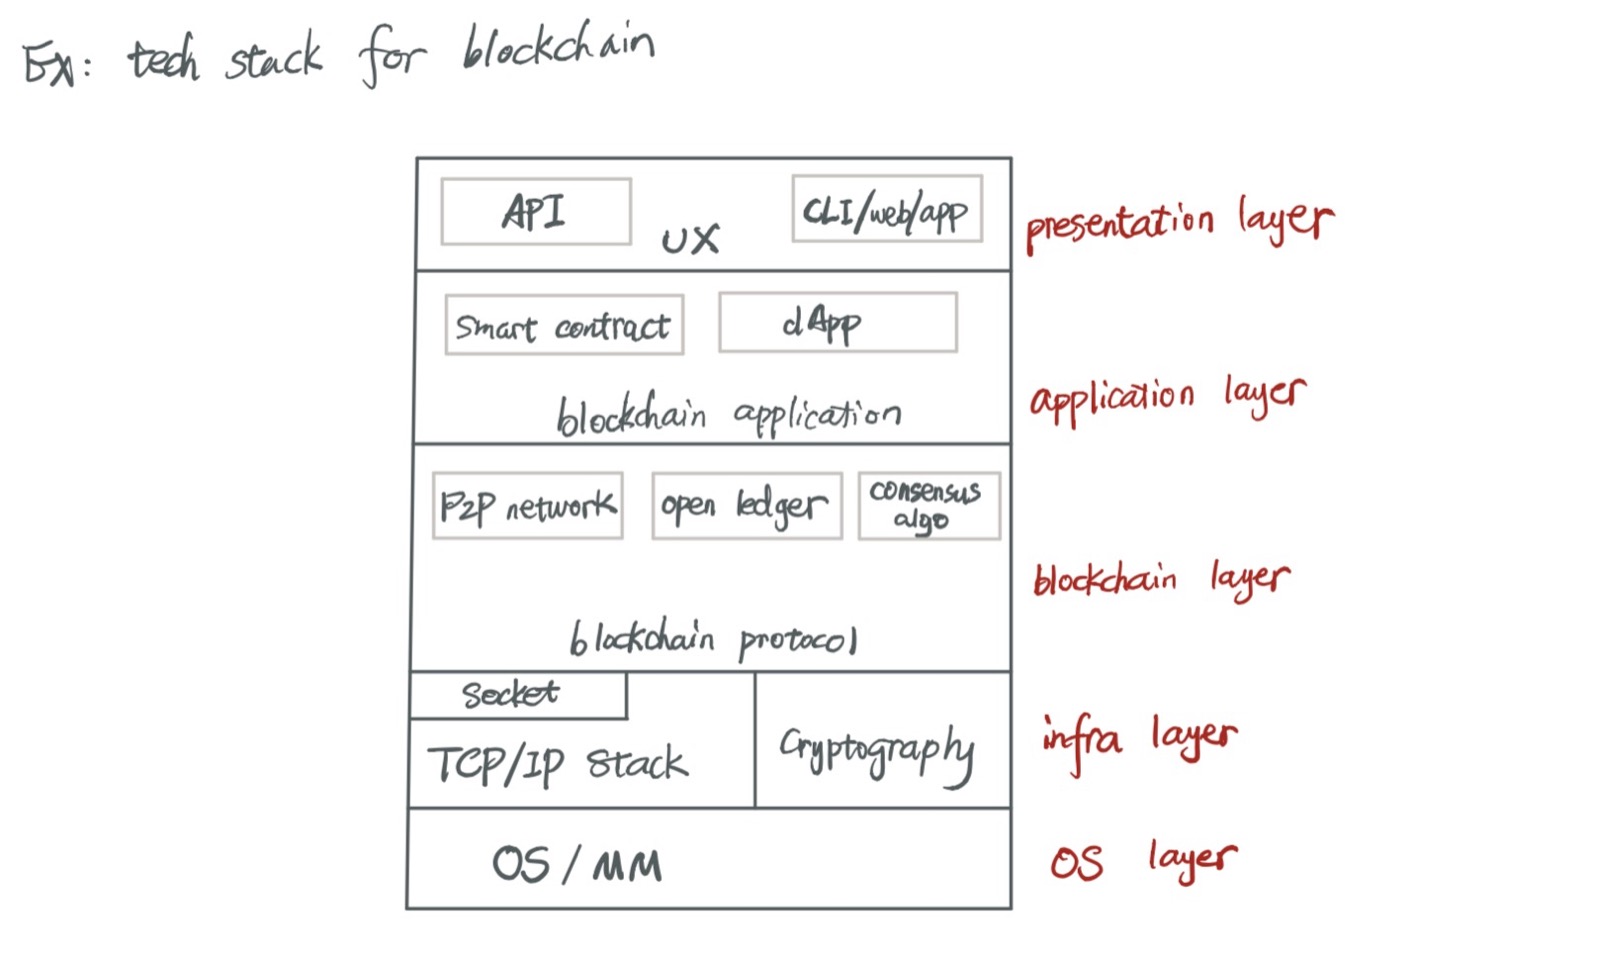 Ex: tech stack for blockchain
API
UX
CLI/web/app
presentation layer
Smart contract
dApp
blockchain application
application layer
P2P network
open ledger
consensus
algo
blockchain protocol
blockchain layer
Socket
TCP/IP Stack
Cryptography
infra layer
OS/MM
OS layer